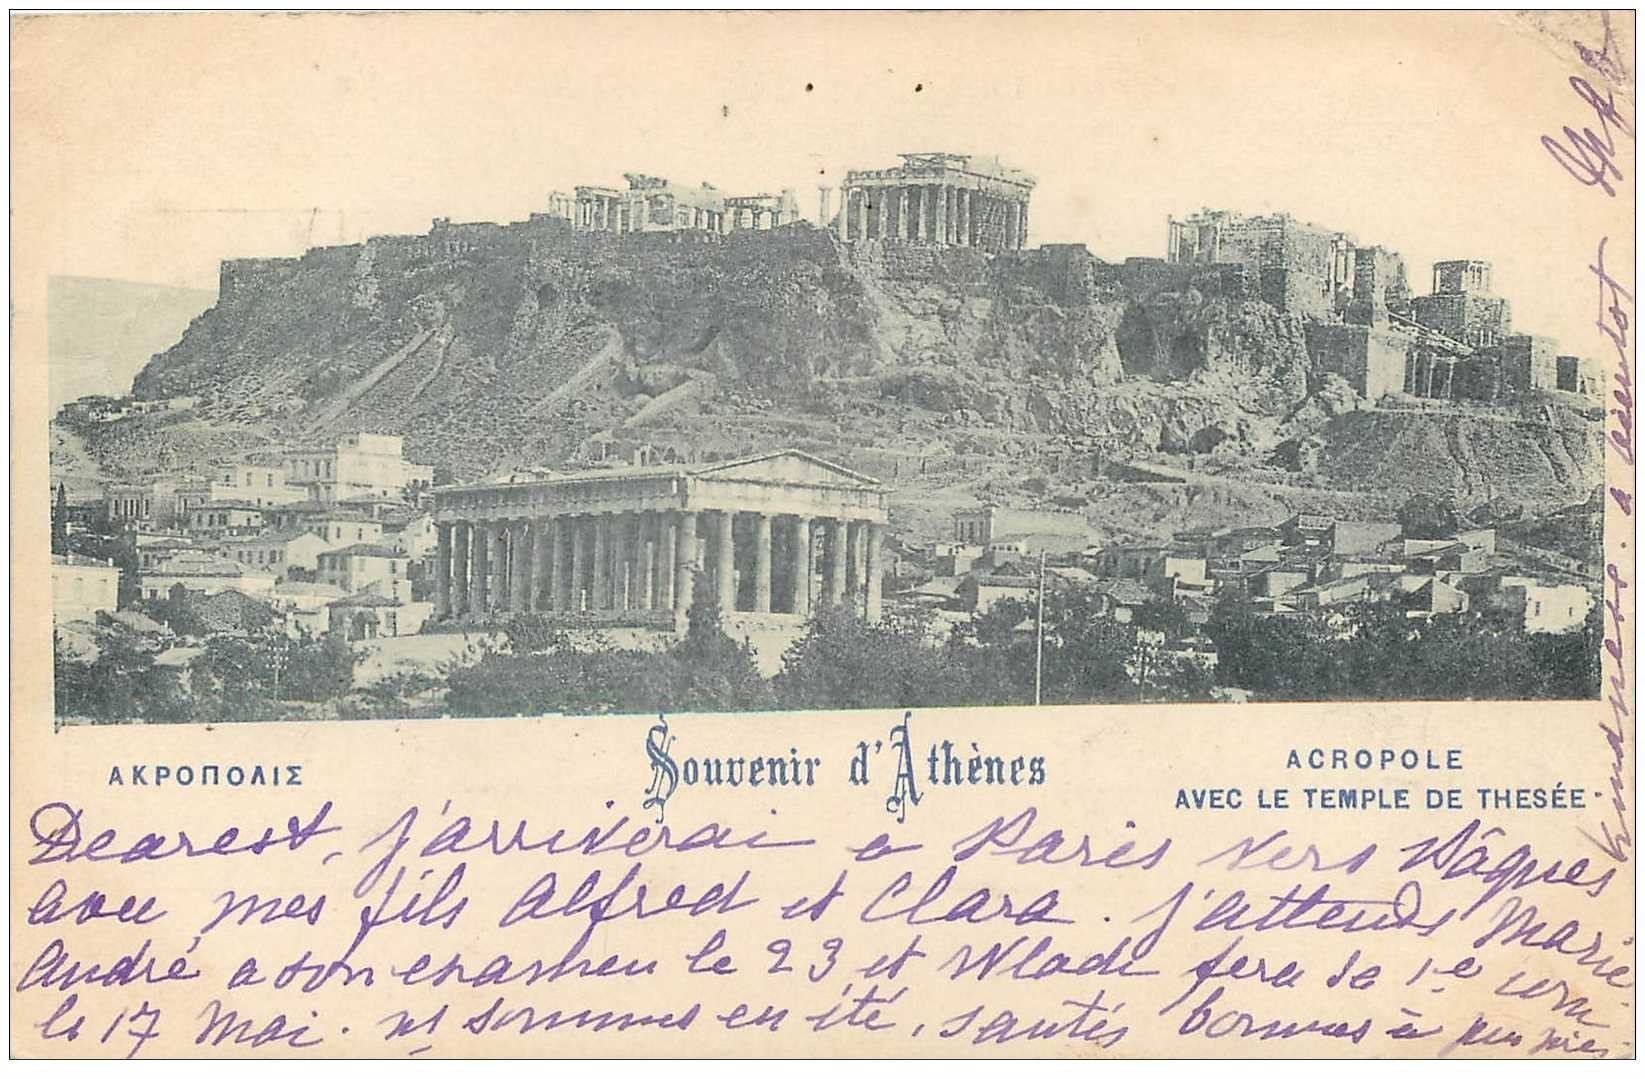 ΑΚΡΟΠΟΛΙΣ
Souvenir d'Athènes
ACROPOLE
AVEC LE TEMPLE DE THESÉE
Dearest, j'arriverai a Paris vers Pâques
avec mes fils Alfred et Clara. j'attends Marie
André a son examen le 23 et Wladi fera sa 1e com
le 17 Mai. ns sommes en été, santés bonnes à peu près.
a bientot